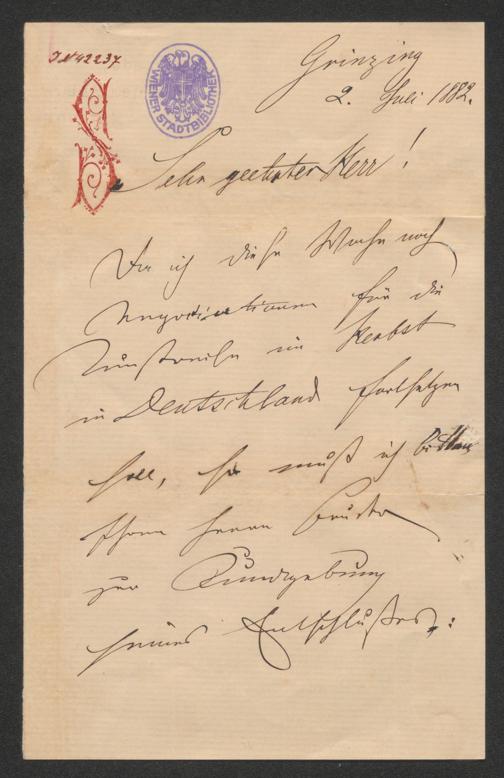 J.N. 42237
WIENER STADTBIBLIOTHEK
Grinzing
2. Juli 1882.
Sehr geehrter Herr!
Da ich diese Woche noch
Negotiationen für die
Kunstreise im Herbst
in Deutschland fortsetzen
soll, so muß ich bitten
Ihren Herrn Bruder
zur Kundgebung
seines Entschlußes: